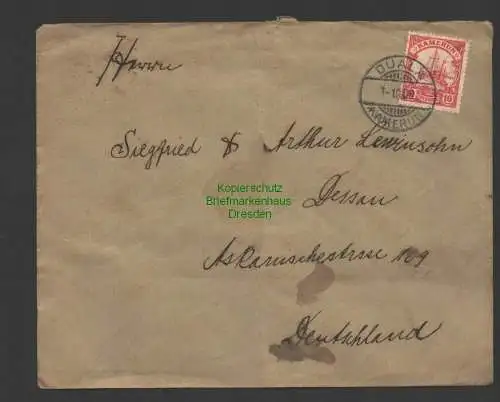 KAMERUN
10
DUALA
KAMERUN
Herrn
Siegfried & Arthur Lewinsohn
Kopierschutz
Briefmarkenhaus
Dresden
Dessau
Askanischestrasse 109
Deutschland